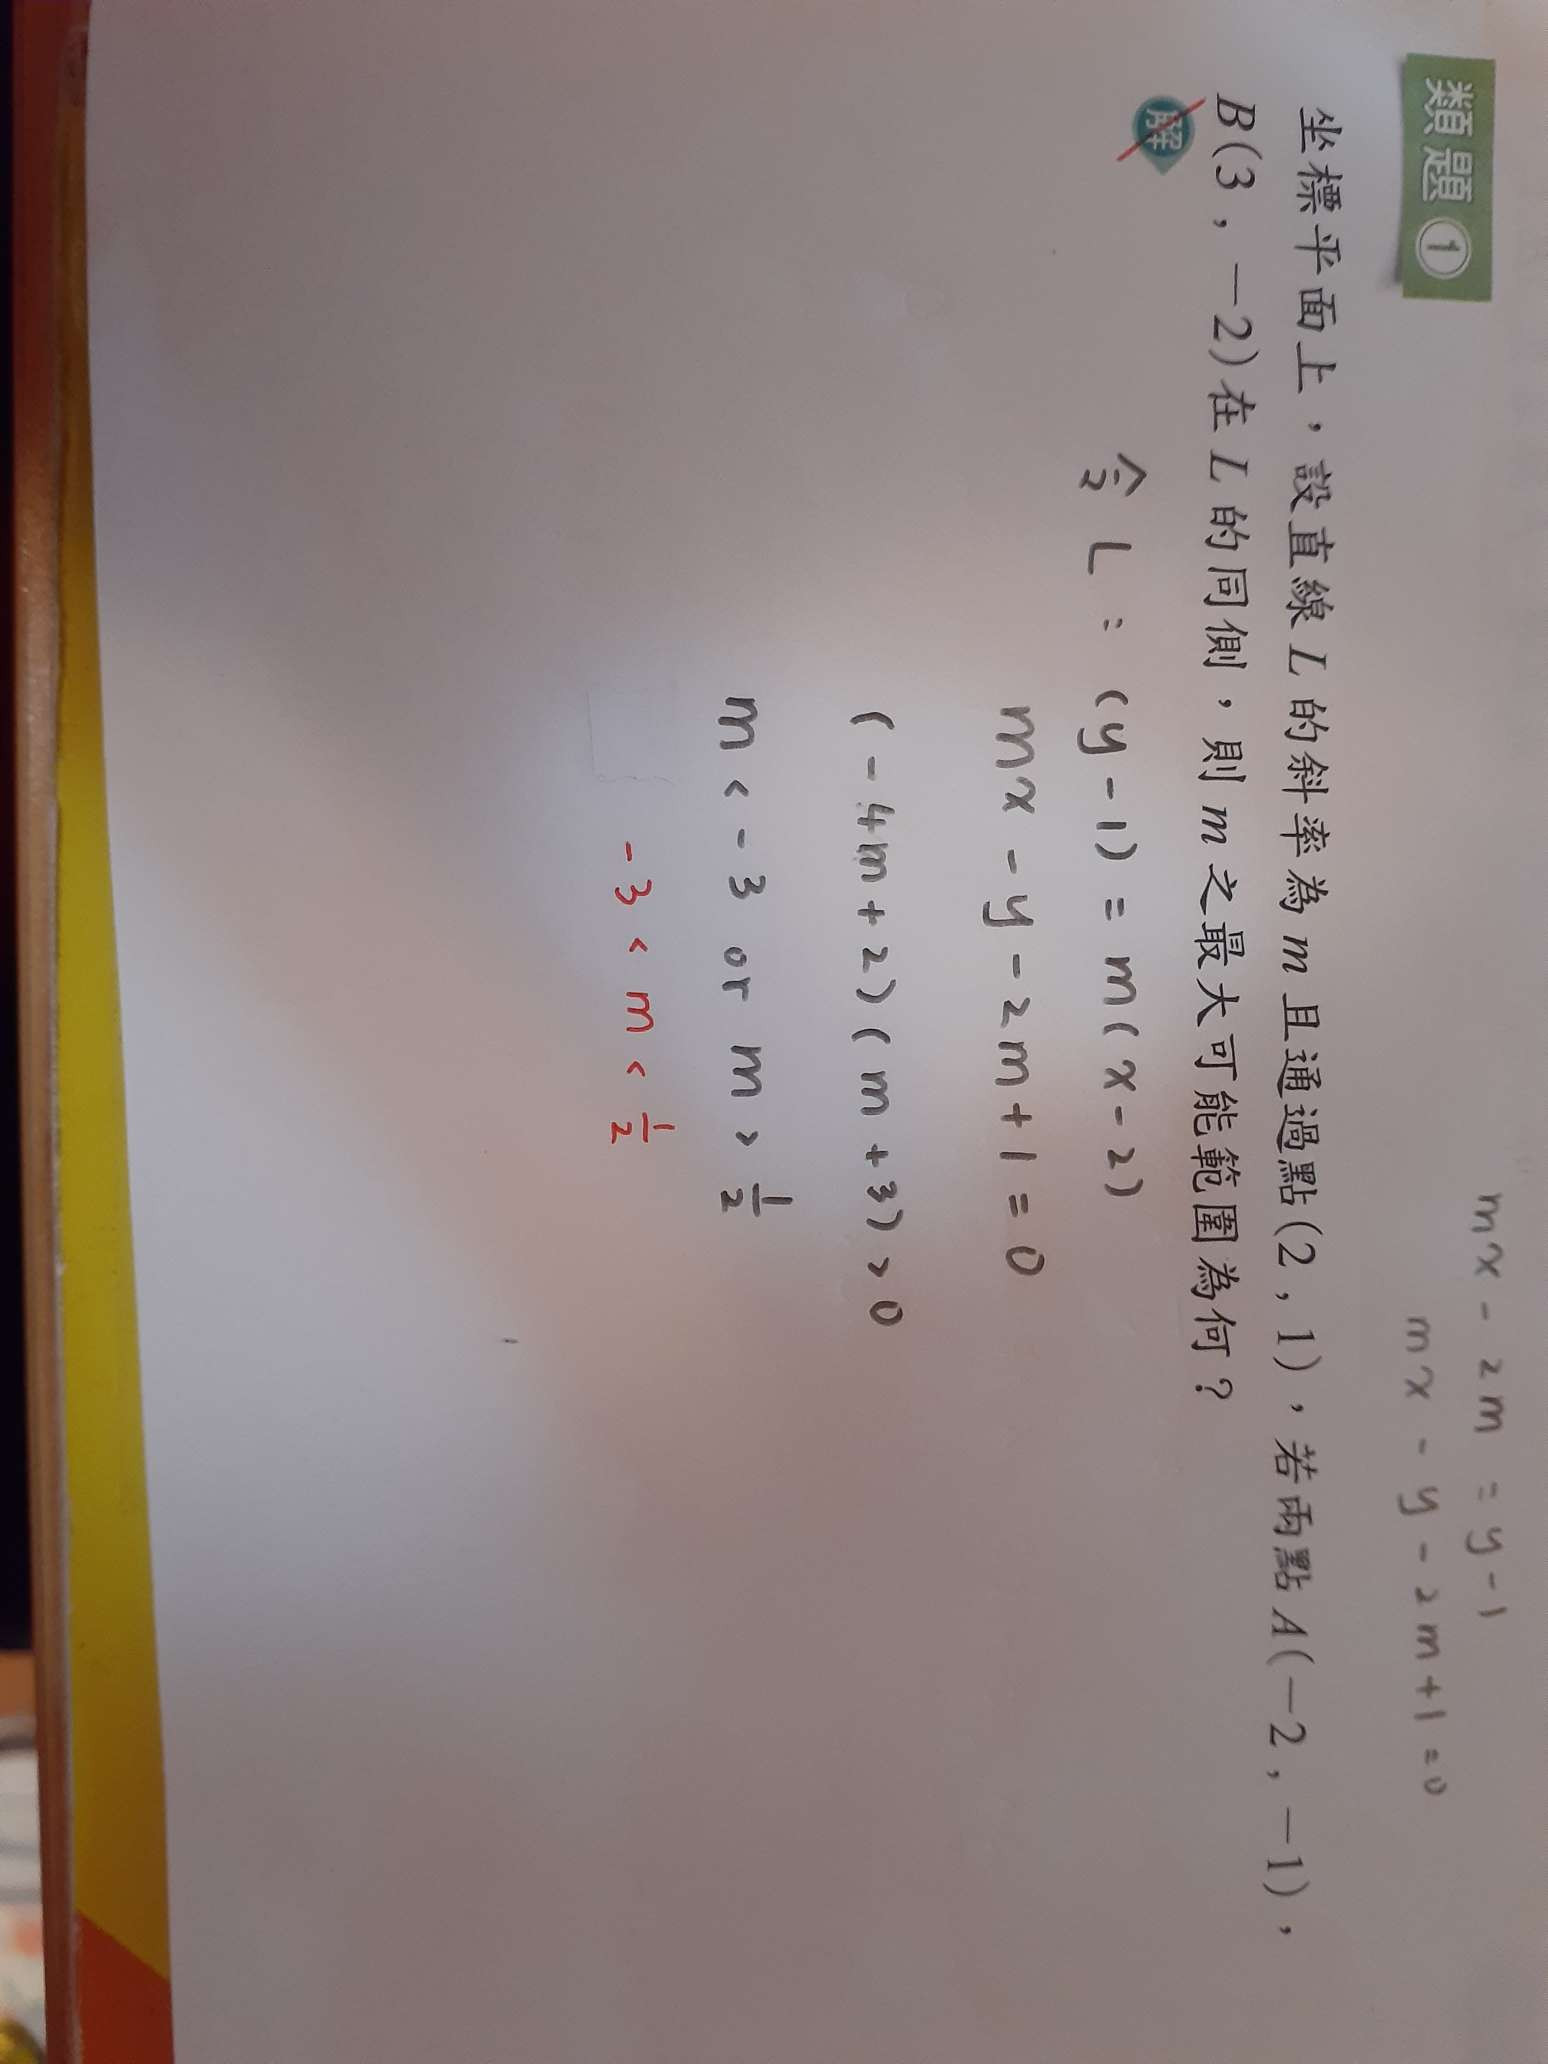 mx - 2m = y - 1
mx - y - 2m + 1 = 0
類題 1
坐標平面上，設直線 L 的斜率為 m 且通過點(2，1)，若兩點 A(－2，－1)，
B(3，－2)在 L 的同側，則 m 之最大可能範圍為何？
解
令 L : (y - 1) = m(x - 2)
mx - y - 2m + 1 = 0
(-4m + 2)(m + 3) > 0
m < -3 or m > 1/2
-3 < m < 1/2